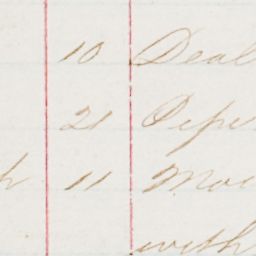 10 Deal
21 Pipe
h 11 Mor
with